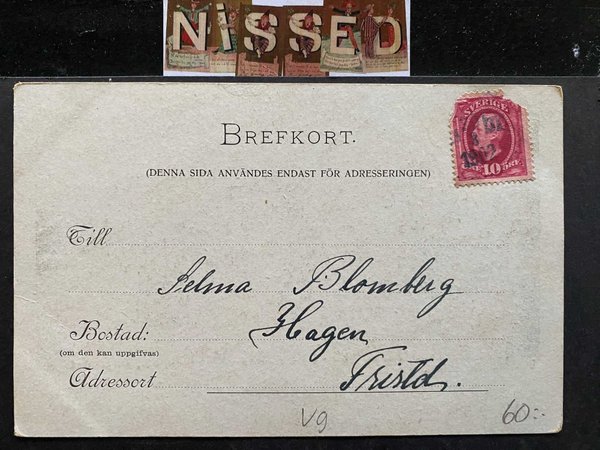 NiSSED
BREFKORT.
(DENNA SIDA ANVÄNDES ENDAST FÖR ADRESSERINGEN)
SVERIGE
1902
10 ÖRE
Till
Selma Blomberg
Bostad:
Hagen
(om den kan uppgifvas)
Adressort
Fristd.
Vg
60:-